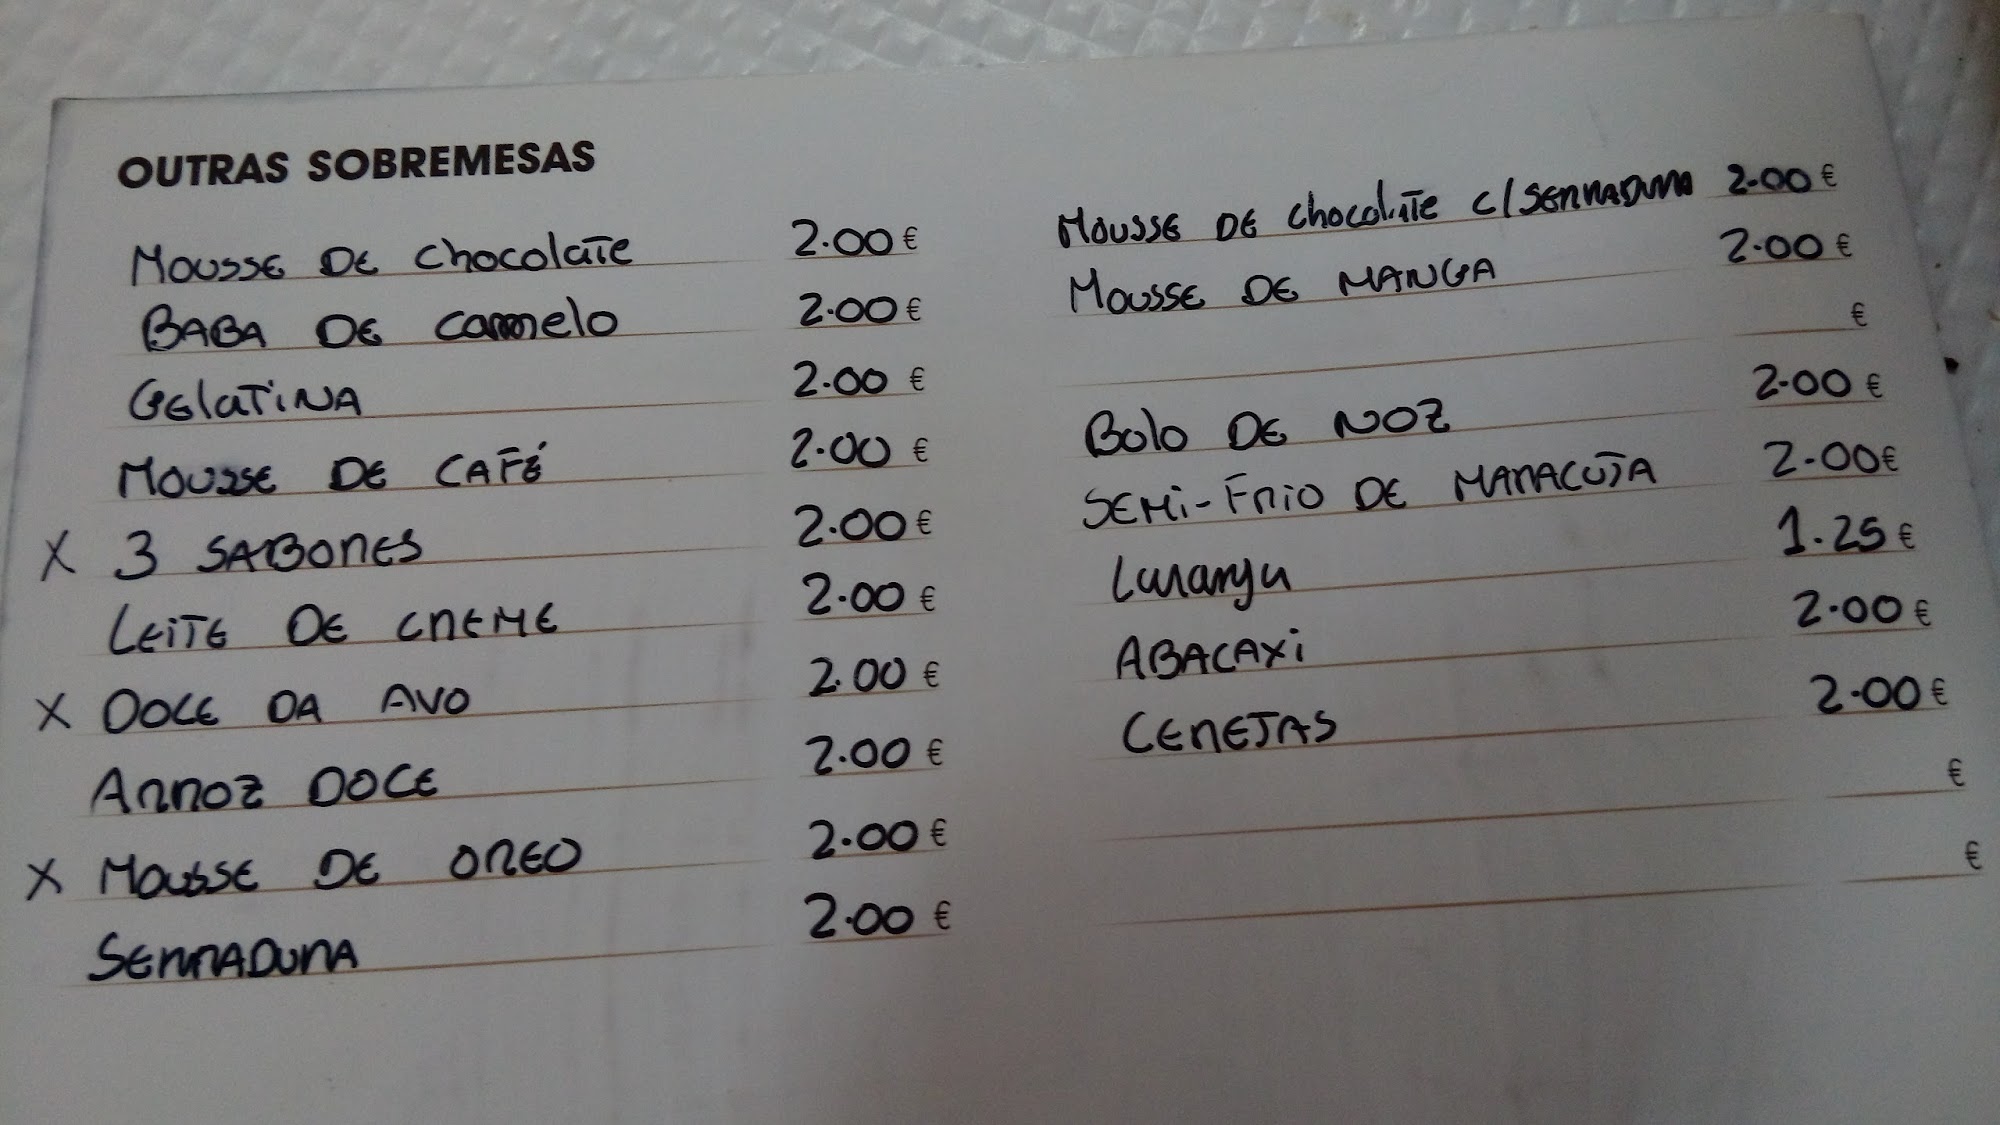 OUTRAS SOBREMESAS
Mousse de chocolate 2.00 €
Baba de caramelo 2.00 €
Gelatina 2.00 €
Mousse de café 2.00 €
X 3 sabores 2.00 €
Leite de creme 2.00 €
X Doce da avo 2.00 €
Arroz doce 2.00 €
X Mousse de oreo 2.00 €
Serradura 2.00 €
Mousse de chocolate c/serradura 2.00 €
Mousse de manga 2.00 €
€
Bolo de noz 2.00 €
Semi-frio de maracuja 2.00 €
Laranja 1.25 €
Abacaxi 2.00 €
Cerejas 2.00 €
€
€